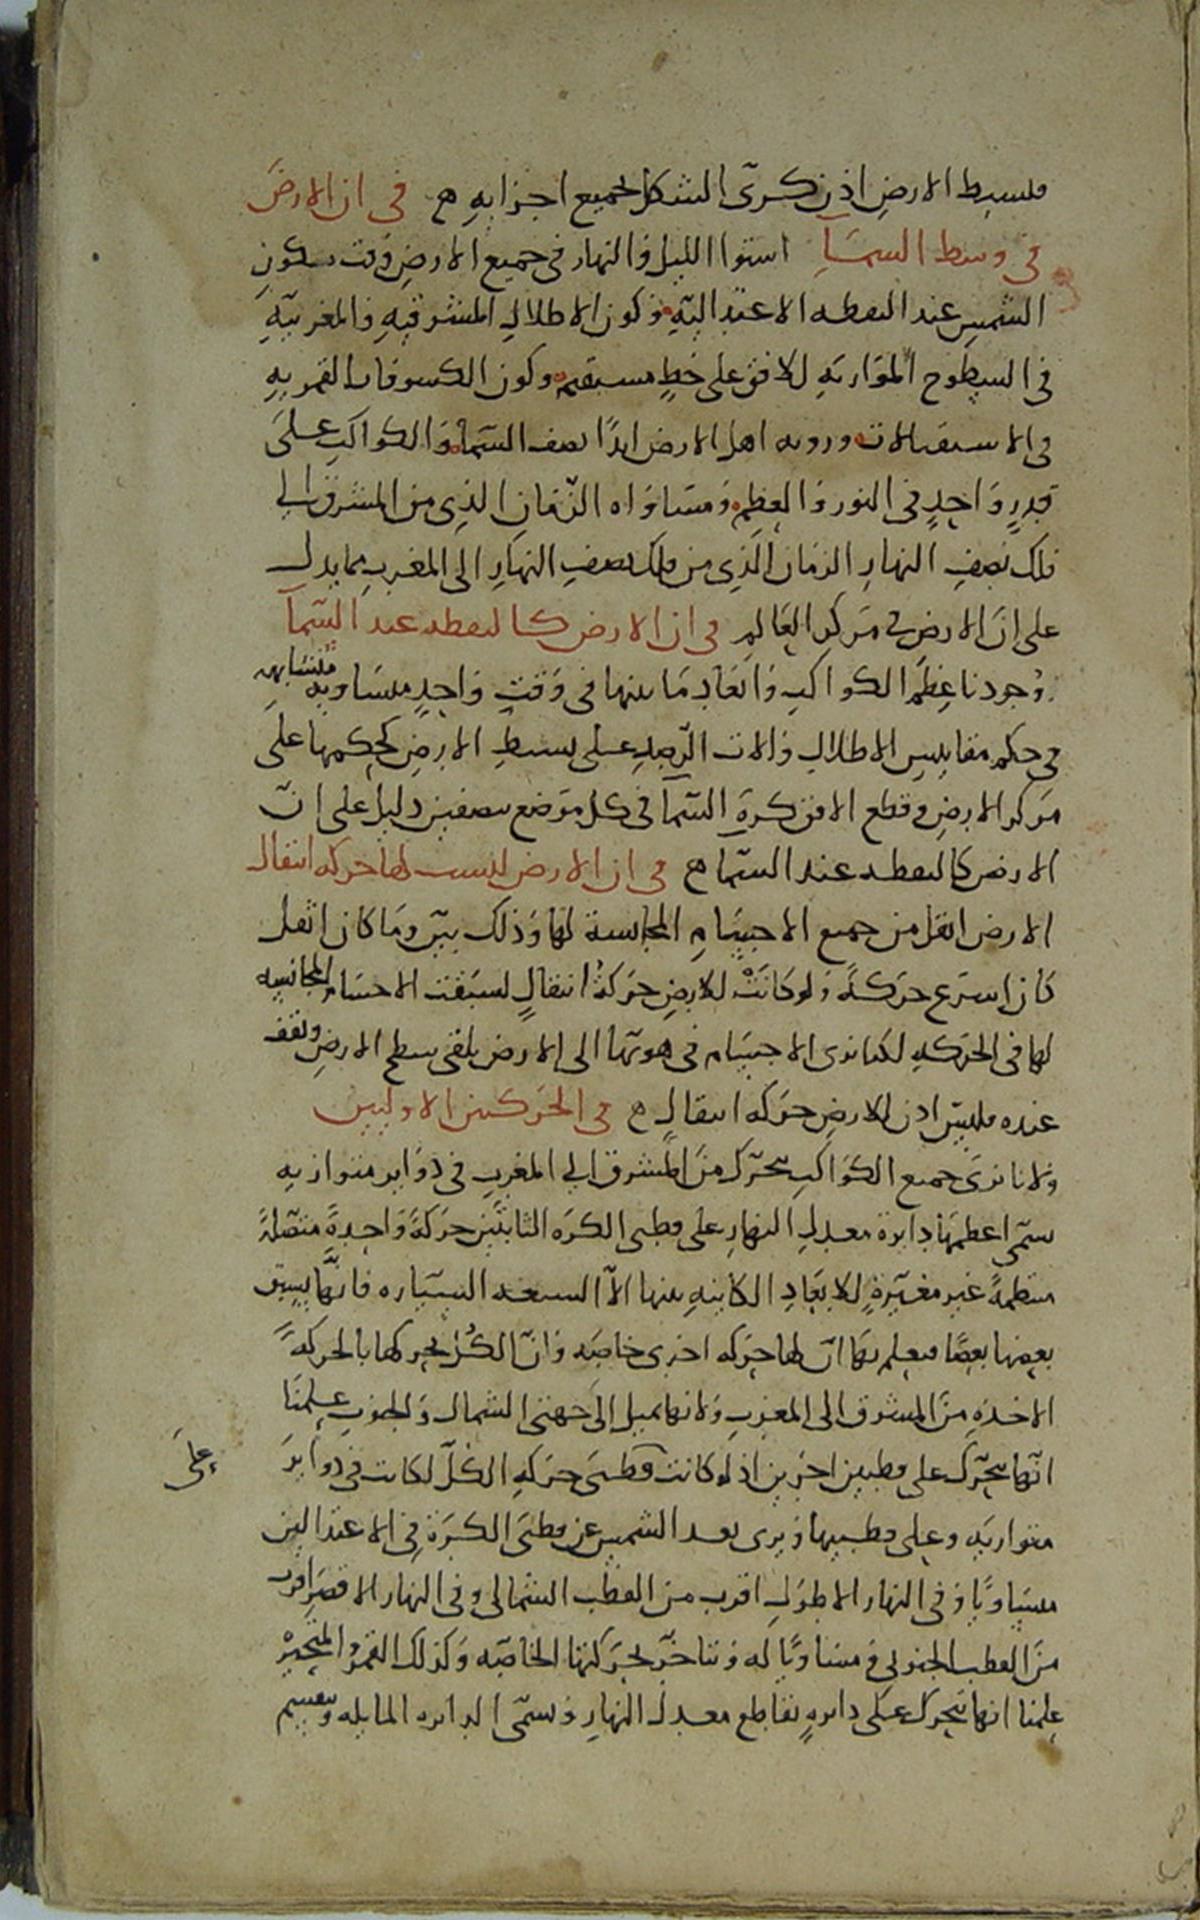 فلبسيط الارض اذن كرى الشكل لجميع اجزايه ه في ان الارض
في وسط السمآء استوا الليل والنهار في جميع الارض وقت تكون
الشمس عند النقطه الاعتداليه وكون الاظلال المشرقيه والمغربيه
في السطوح الموازيه للافق على خط مستقيم وكون الكسوفات القمريه
في الاستقبالات ورويه اهل الارض ابدًا نصف السمآ والكواكب على
قدرٍ واحدٍ في النور والعظم ومساواه الزمان الذي من المشرق الى
فلك نصف النهار الزمان الذي من فلك نصف النهار الى المغرب مما يدل
على ان الارض في مركز العالم في ان الارض كالنقطه عند السمآ
وجودنا عظم الكواكب وابعاد ما بينها في وقتٍ واحدٍ متساويه متشابهه
في حكم مقاييس الاظلال والات الرصد على بسيط الارض كحكمها على
مركز الارض وقطع الافق كرة السمآ في كل موضع بنصفين دليل على ان
الارض كالنقطه عند السما ه في ان الارض ليست لها حركه انتقال
الارض اثقل من جميع الاجسام المجانسة لها وذلك بين وما كان اثقل
كان اسرع حركةً ولو كانت للارض حركةُ انتقالٍ لسبقت الاجسام المجانسه
لها في الحركه لكنا نرى الاجسام في هويها الى الارض يلقى سطح الارض ويقف
عنده فليس اذن للارض حركه انتقال ه في الحركتين الاوليين
ولانا نرى جميع الكواكب يتحرك من المشرق الى المغرب في دواير متوازيه
يسمى اعظمها دايرة معدل النهار على قطبى الكره الثابتين حركةً واحدةً متصلةً
منتظمةً غير مغيرةٍ للابعاد الكاينه بينها الا السبعه السياره فانها يسبق
بعضها بعضًا فيعلم بها ان لها حركه اخرى خاصه وان الكل يحركها بالحركة
الاخذه من المشرق الى المغرب ولانها تميل الى جهتى الشمال والجنوب علمنا
انها يتحرك على قطبين اخرين اذ لو كانت قطبى حركه الكل لكانت في دواير
على
متوازيه وعلى قطبيها ويرى بعد الشمس عن قطبى الكرة في الاعتدالين
متساويًا وفي النهار الاطول اقرب من القطب الشمالى وفي النهار الاقصر اقرب
من القطب الجنوبى ومساويًا له وتتاخر بحركتها الخاصه وكذلك القمر والمتحيرة
علمنا انها تتحرك على دايرهٍ يقاطع معدل النهار ويسمى الدايره المايله وينقسم